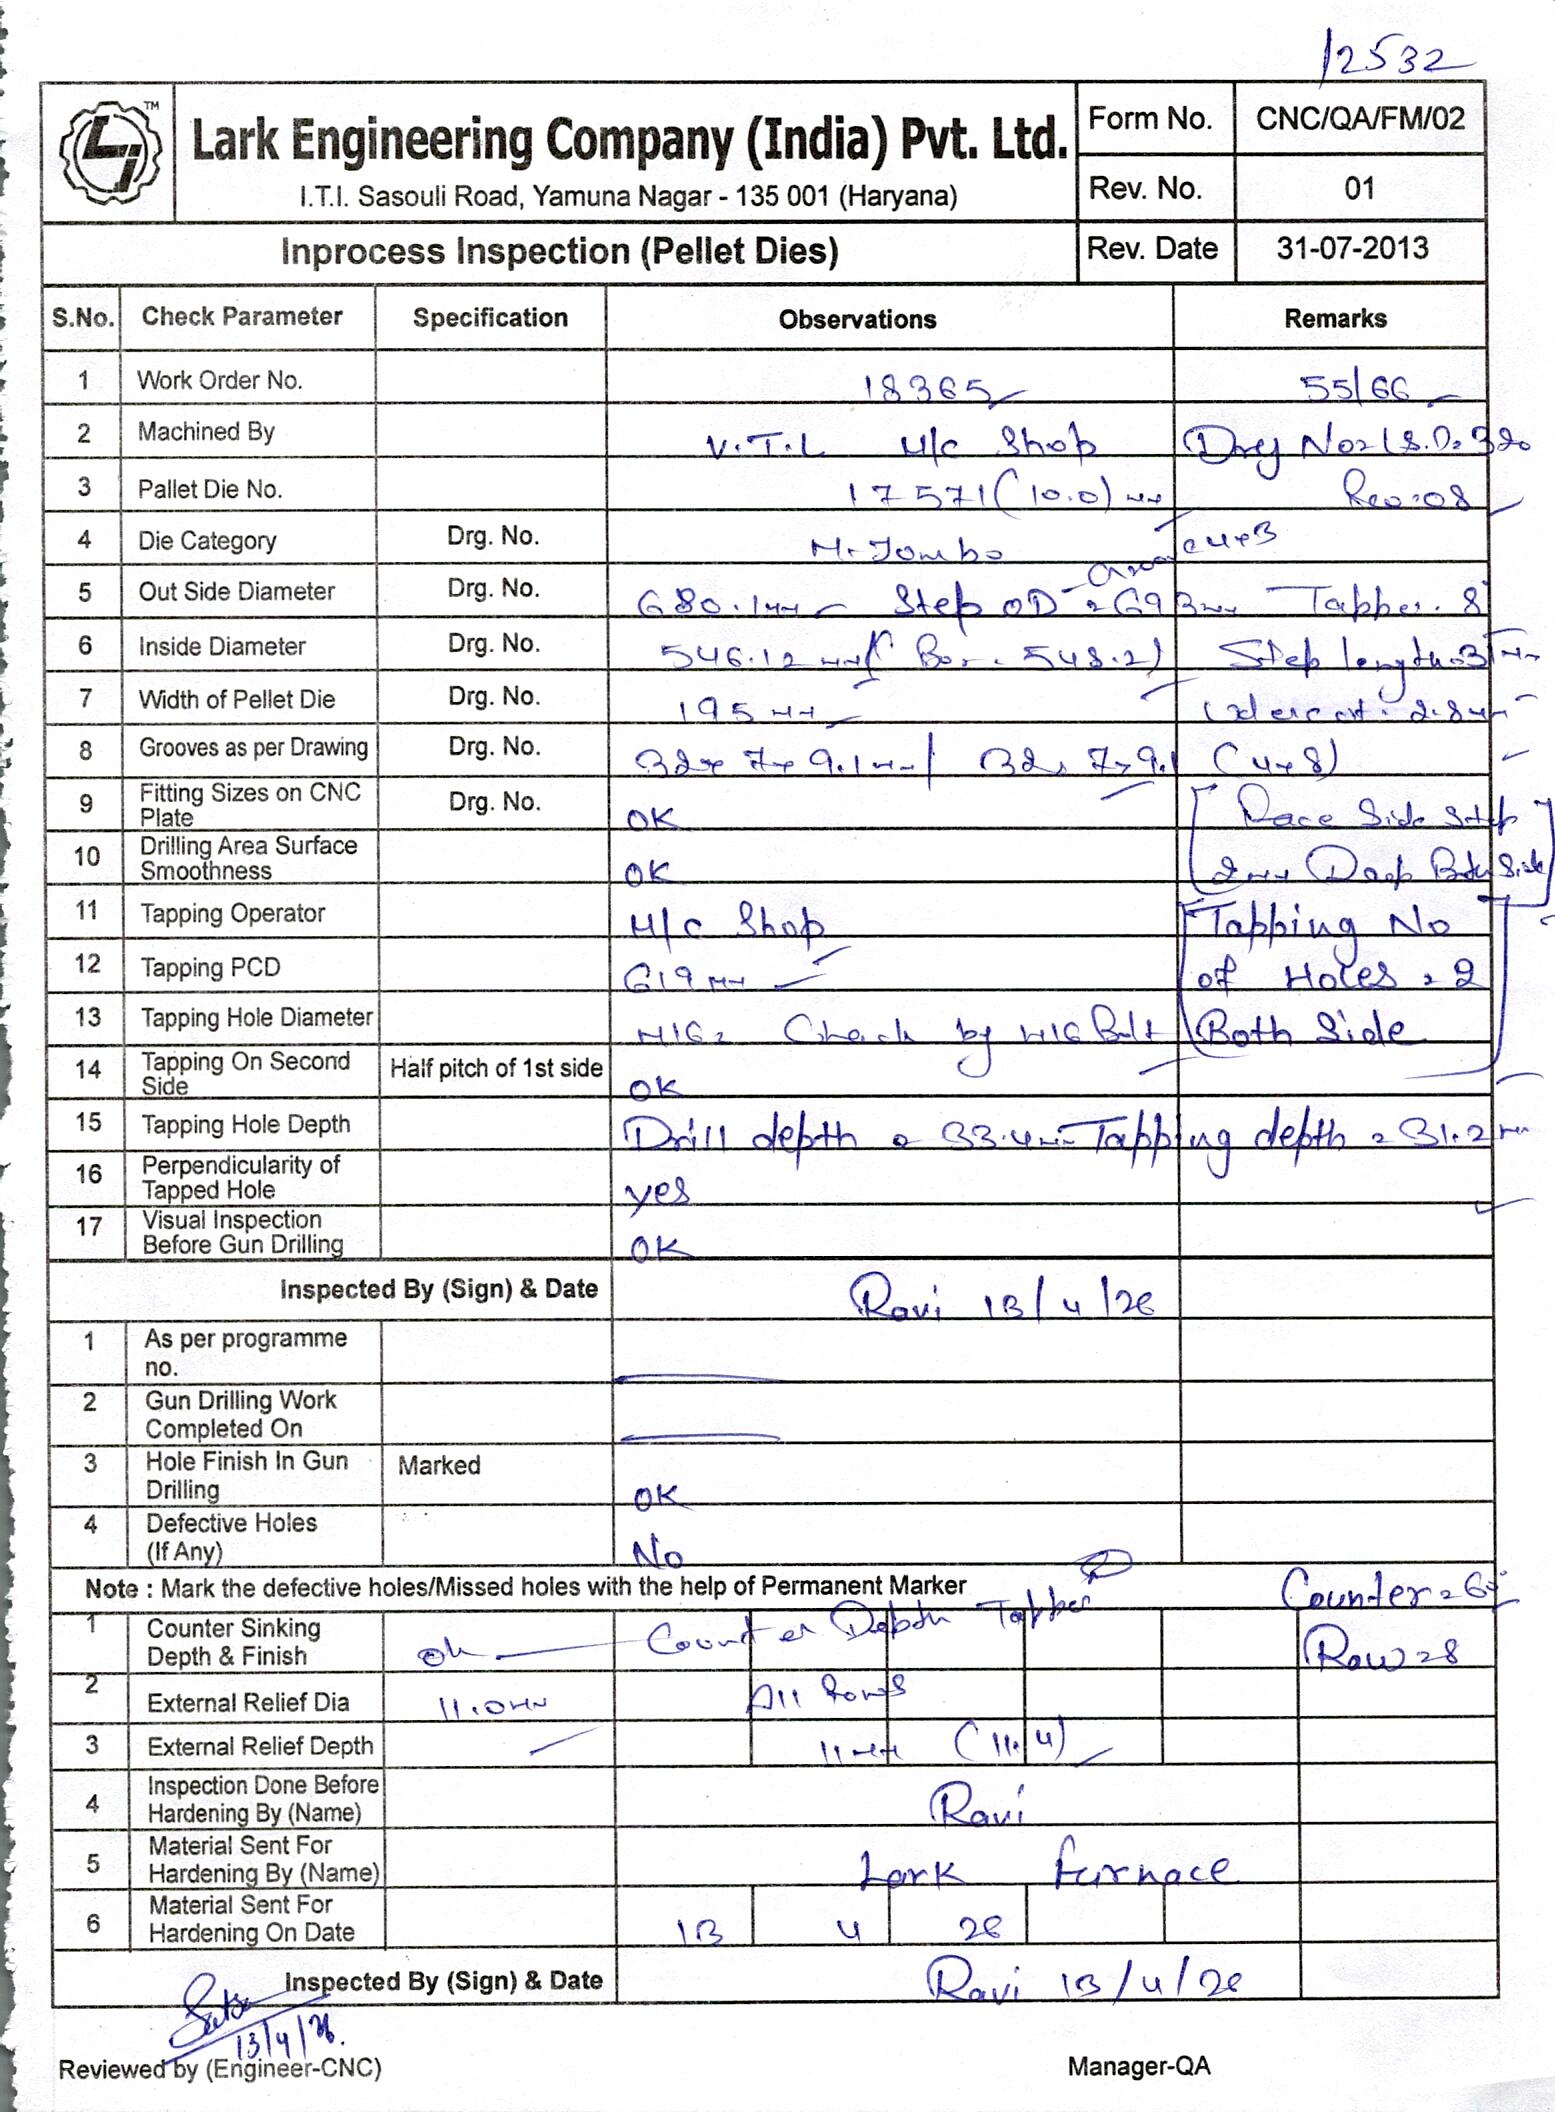 12532
TM
Lark Engineering Company (India) Pvt. Ltd.
I.T.I. Sasouli Road, Yamuna Nagar - 135 001 (Haryana)
Form No. CNC/QA/FM/02
Rev. No. 01
Inprocess Inspection (Pellet Dies)
Rev. Date 31-07-2013
S.No. Check Parameter Specification Observations Remarks
1 Work Order No. 18365 55/66
2 Machined By V.T.L M/c Shop Drg No
3 Pallet Die No. 17571 (10.0) mm Rev:08
4 Die Category Drg. No. M. Jombo
5 Out Side Diameter Drg. No. 680.1mm Step OD = 693mm Tapper. 8°
6 Inside Diameter Drg. No. 546.12 mm ( Bor. 548.2) Step length = 31mm
7 Width of Pellet Die Drg. No. 195 mm 2.8mm
8 Grooves as per Drawing Drg. No. 32x 7x 9.1mm / 32x 7x9.1 (4x8)
9 Fitting Sizes on CNC Plate Drg. No. OK [ Side Step ]
10 Drilling Area Surface Smoothness OK [2mm Deep Both Side]
11 Tapping Operator M/c Shop Tapping No
12 Tapping PCD 619 mm of Holes = 2
13 Tapping Hole Diameter M16 = Check by M16 Bolt Both Side
14 Tapping On Second Side Half pitch of 1st side OK
15 Tapping Hole Depth Drill depth = 33.4mm Tapping depth = 31.2mm
16 Perpendicularity of Tapped Hole yes
17 Visual Inspection Before Gun Drilling OK
Inspected By (Sign) & Date Ravi 13/4/26
1 As per programme no.
2 Gun Drilling Work Completed On
3 Hole Finish In Gun Drilling Marked OK
4 Defective Holes (If Any) No
Note : Mark the defective holes/Missed holes with the help of Permanent Marker Counter = 60°
1 Counter Sinking Depth & Finish ok Counter Depth Tapper Row = 8
2 External Relief Dia 11.0mm All Rows
3 External Relief Depth 11mm (11.4)
4 Inspection Done Before Hardening By (Name) Ravi
5 Material Sent For Hardening By (Name) Lark Furnace
6 Material Sent For Hardening On Date 13 4 26
Inspected By (Sign) & Date Ravi 13/4/26
13/4/26.
Reviewed by (Engineer-CNC) Manager-QA